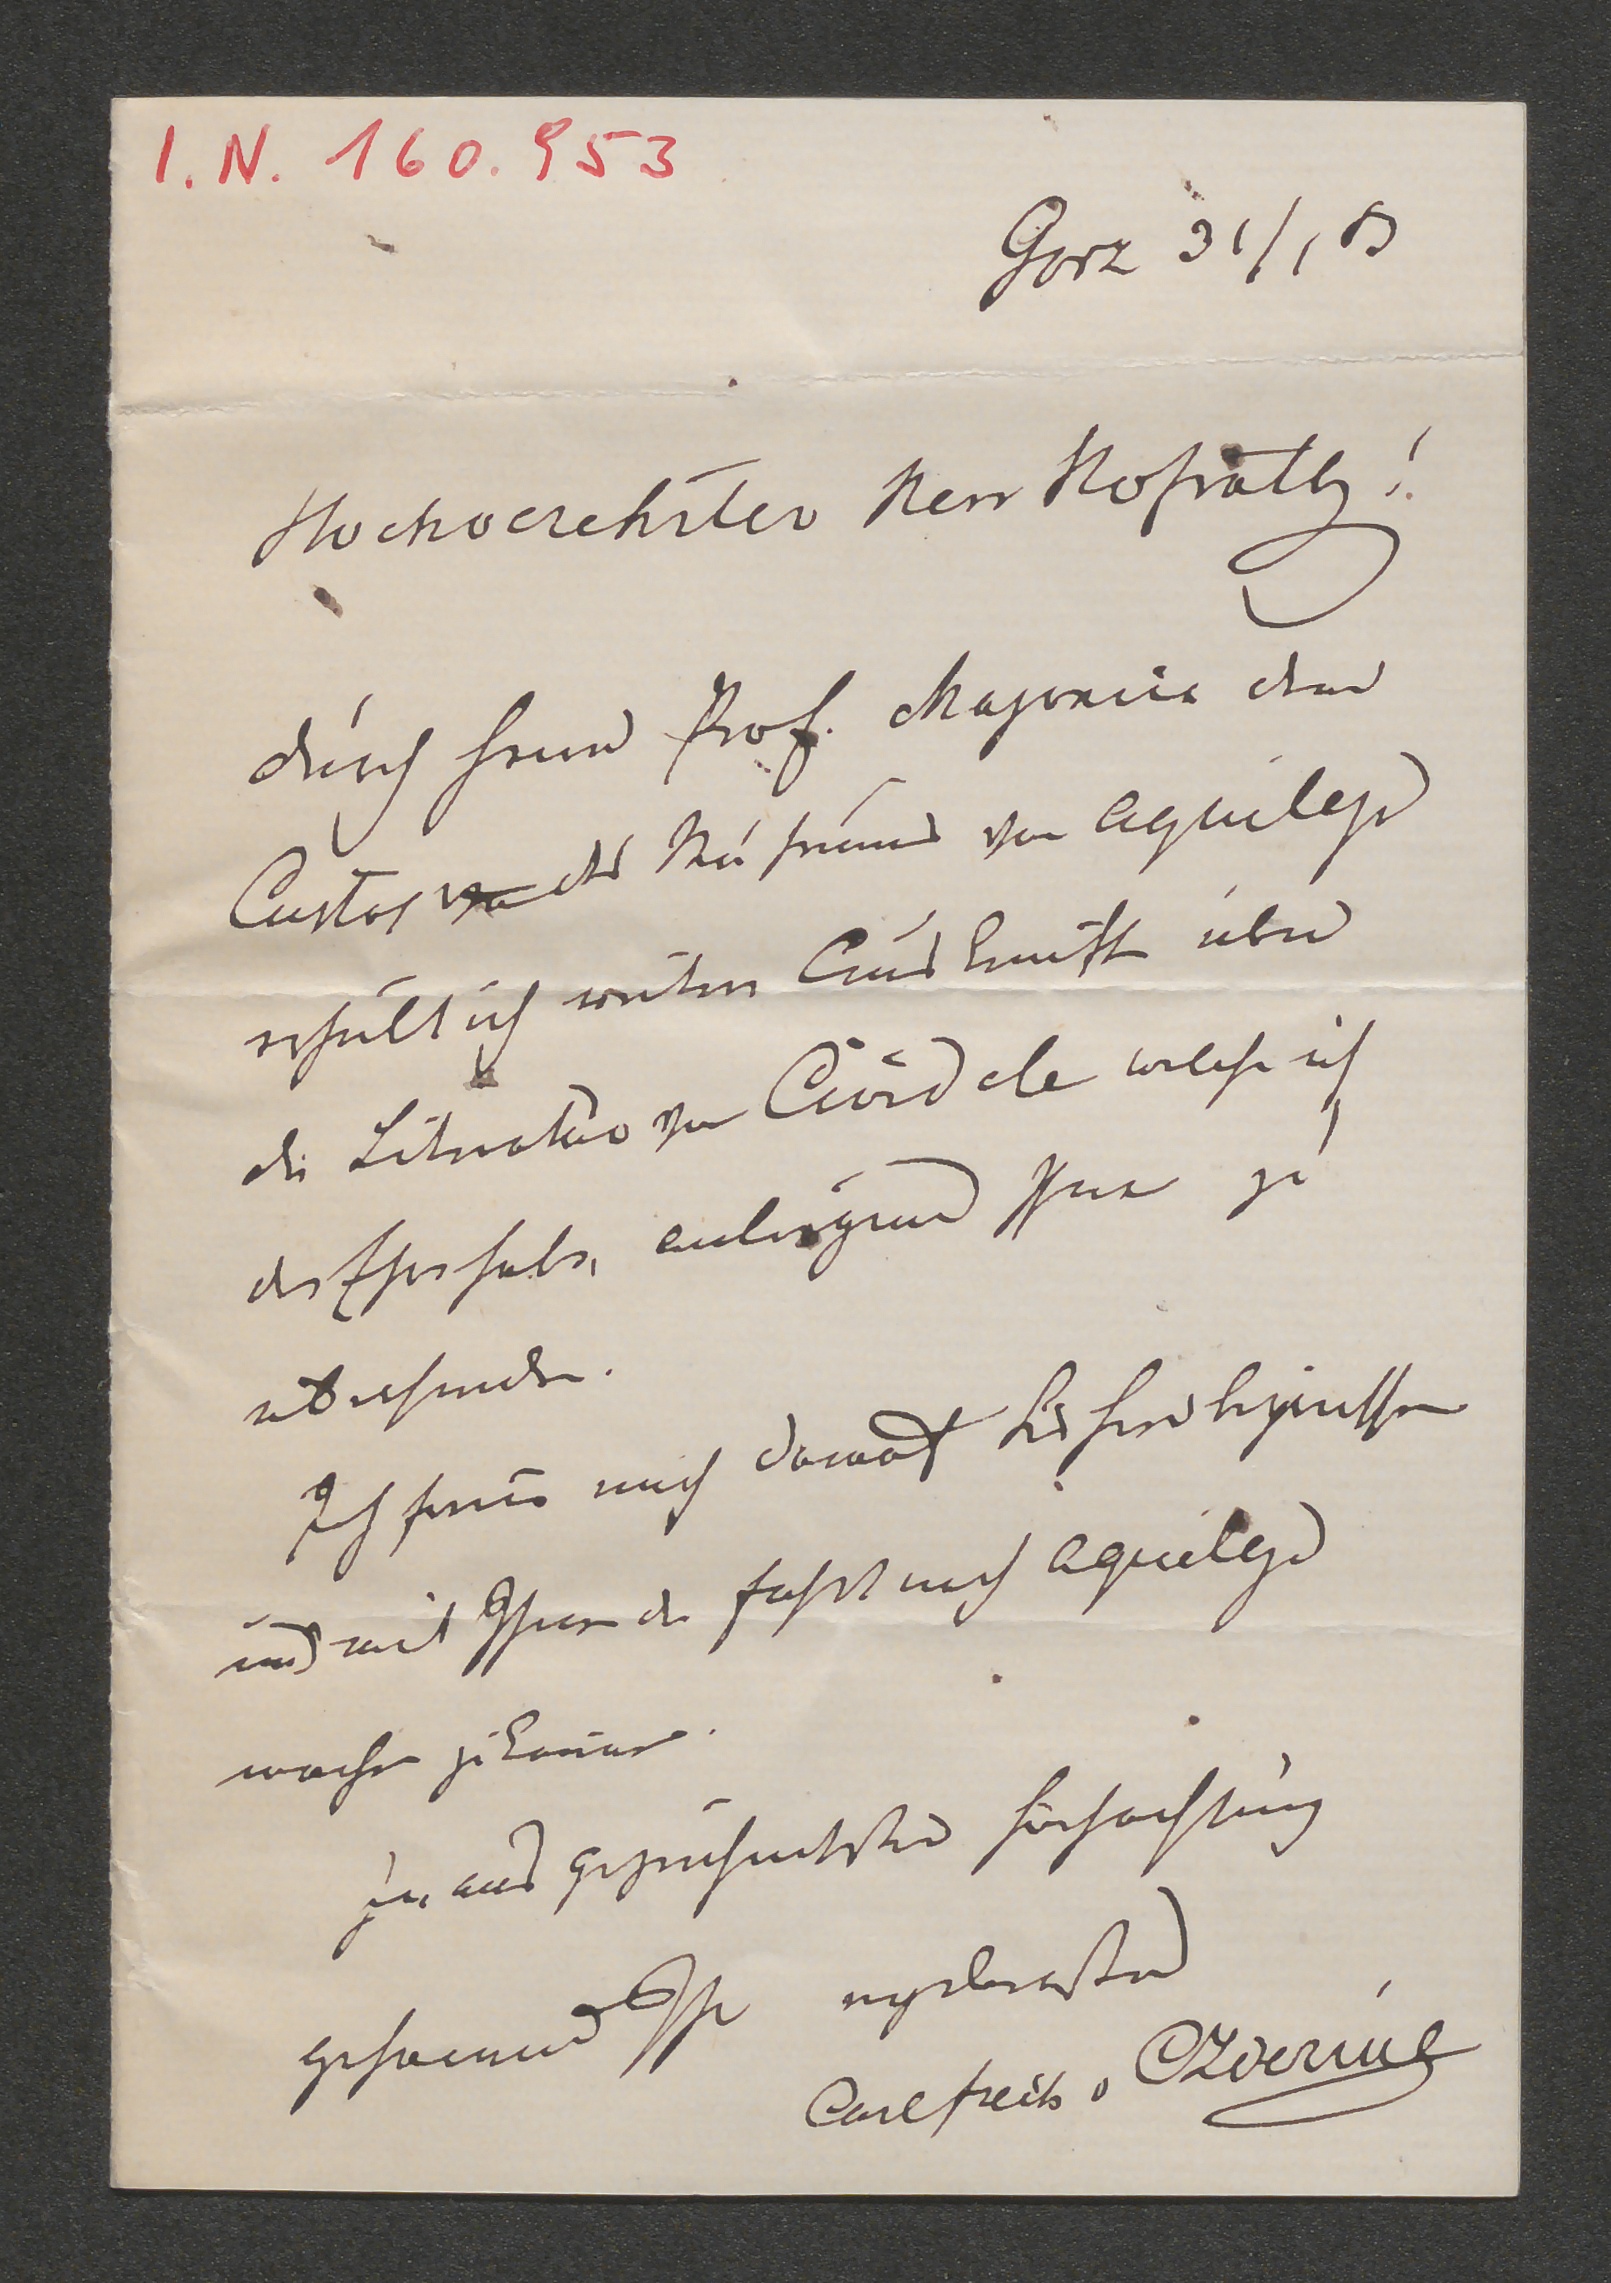 I. N. 160.953
Görz 31/1 83
Hochverehrter Herr Hofrath!
Durch Herrn Prof. Majonica dem
Custos des Museums von Aquileja
erhielt ich weitere Auskunft über
die Literatur von Cividale welche ich
die Ehre habe, anliegend Ihnen zu
übersenden.
Ich freue mich darauf Sie hier begrüssen
und mit Ihnen die Fahrt nach Aquileja
machen zu können.
In ausgezeichnetster Hochachtung
geharrend Ihr ergebenster
Carl Freih. v. Czoernig